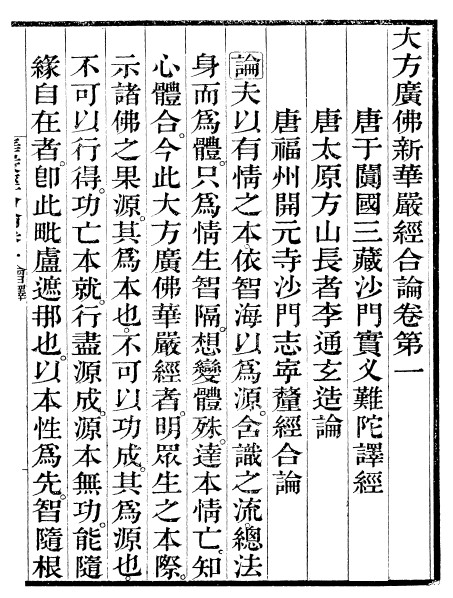 大方廣佛新華嚴經合論卷第一
唐于闐國三藏沙門實叉難陀譯經
唐太原方山長者李通玄造論
唐福州開元寺沙門志寧釐經合論
論夫以有情之本。依智海以為源。含識之流。總法
身而為體。只為情生智隔。想變體殊。達本情亡。知
心體合。今此大方廣佛華嚴經者。明眾生之本際。
示諸佛之果源。其為本也。不可以功成。其為源也。
不可以行得。功亡本就。行盡源成。源本無功。能隨
緣自在者。卽此毗盧遮那也。以本性為先。智隨根